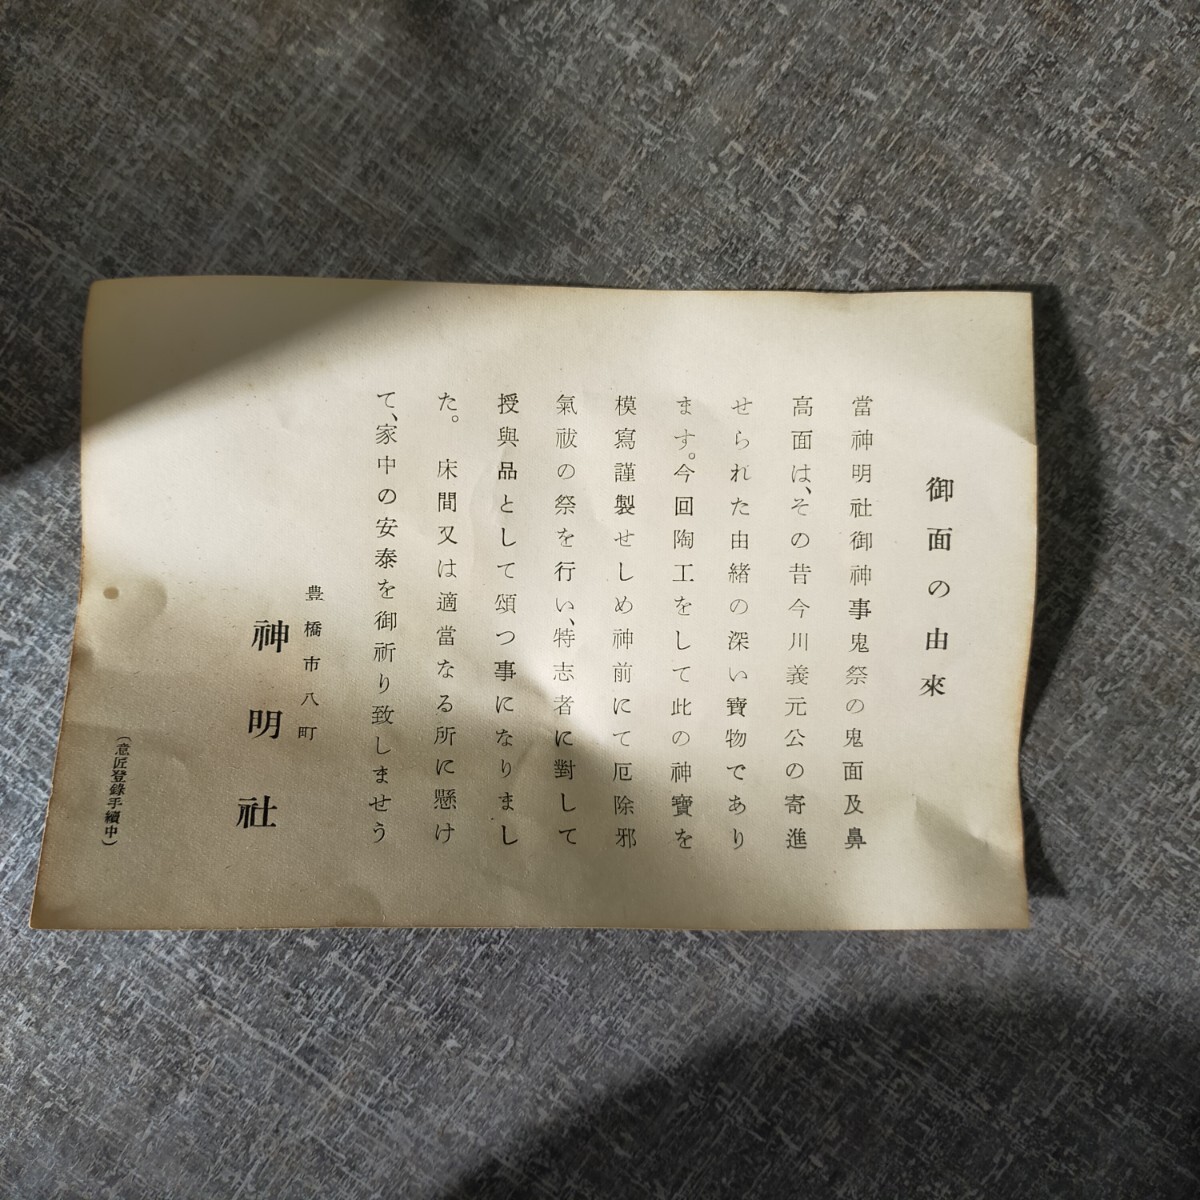 御面の由來
當神明社御神事鬼祭の鬼面及鼻
高面は、その昔今川義元公の寄進
せられた由緒の深い寶物であり
ます。今回陶工をして此の神寶を
模寫謹製せしめ神前にて厄除邪
氣祓の祭を行い、特志者に對して
授與品として頒つ事になりまし
た。床間又は適當なる所に懸け
て、家中の安泰を御祈り致しませう
豊橋市八町
神明社
（意匠登錄手續中）